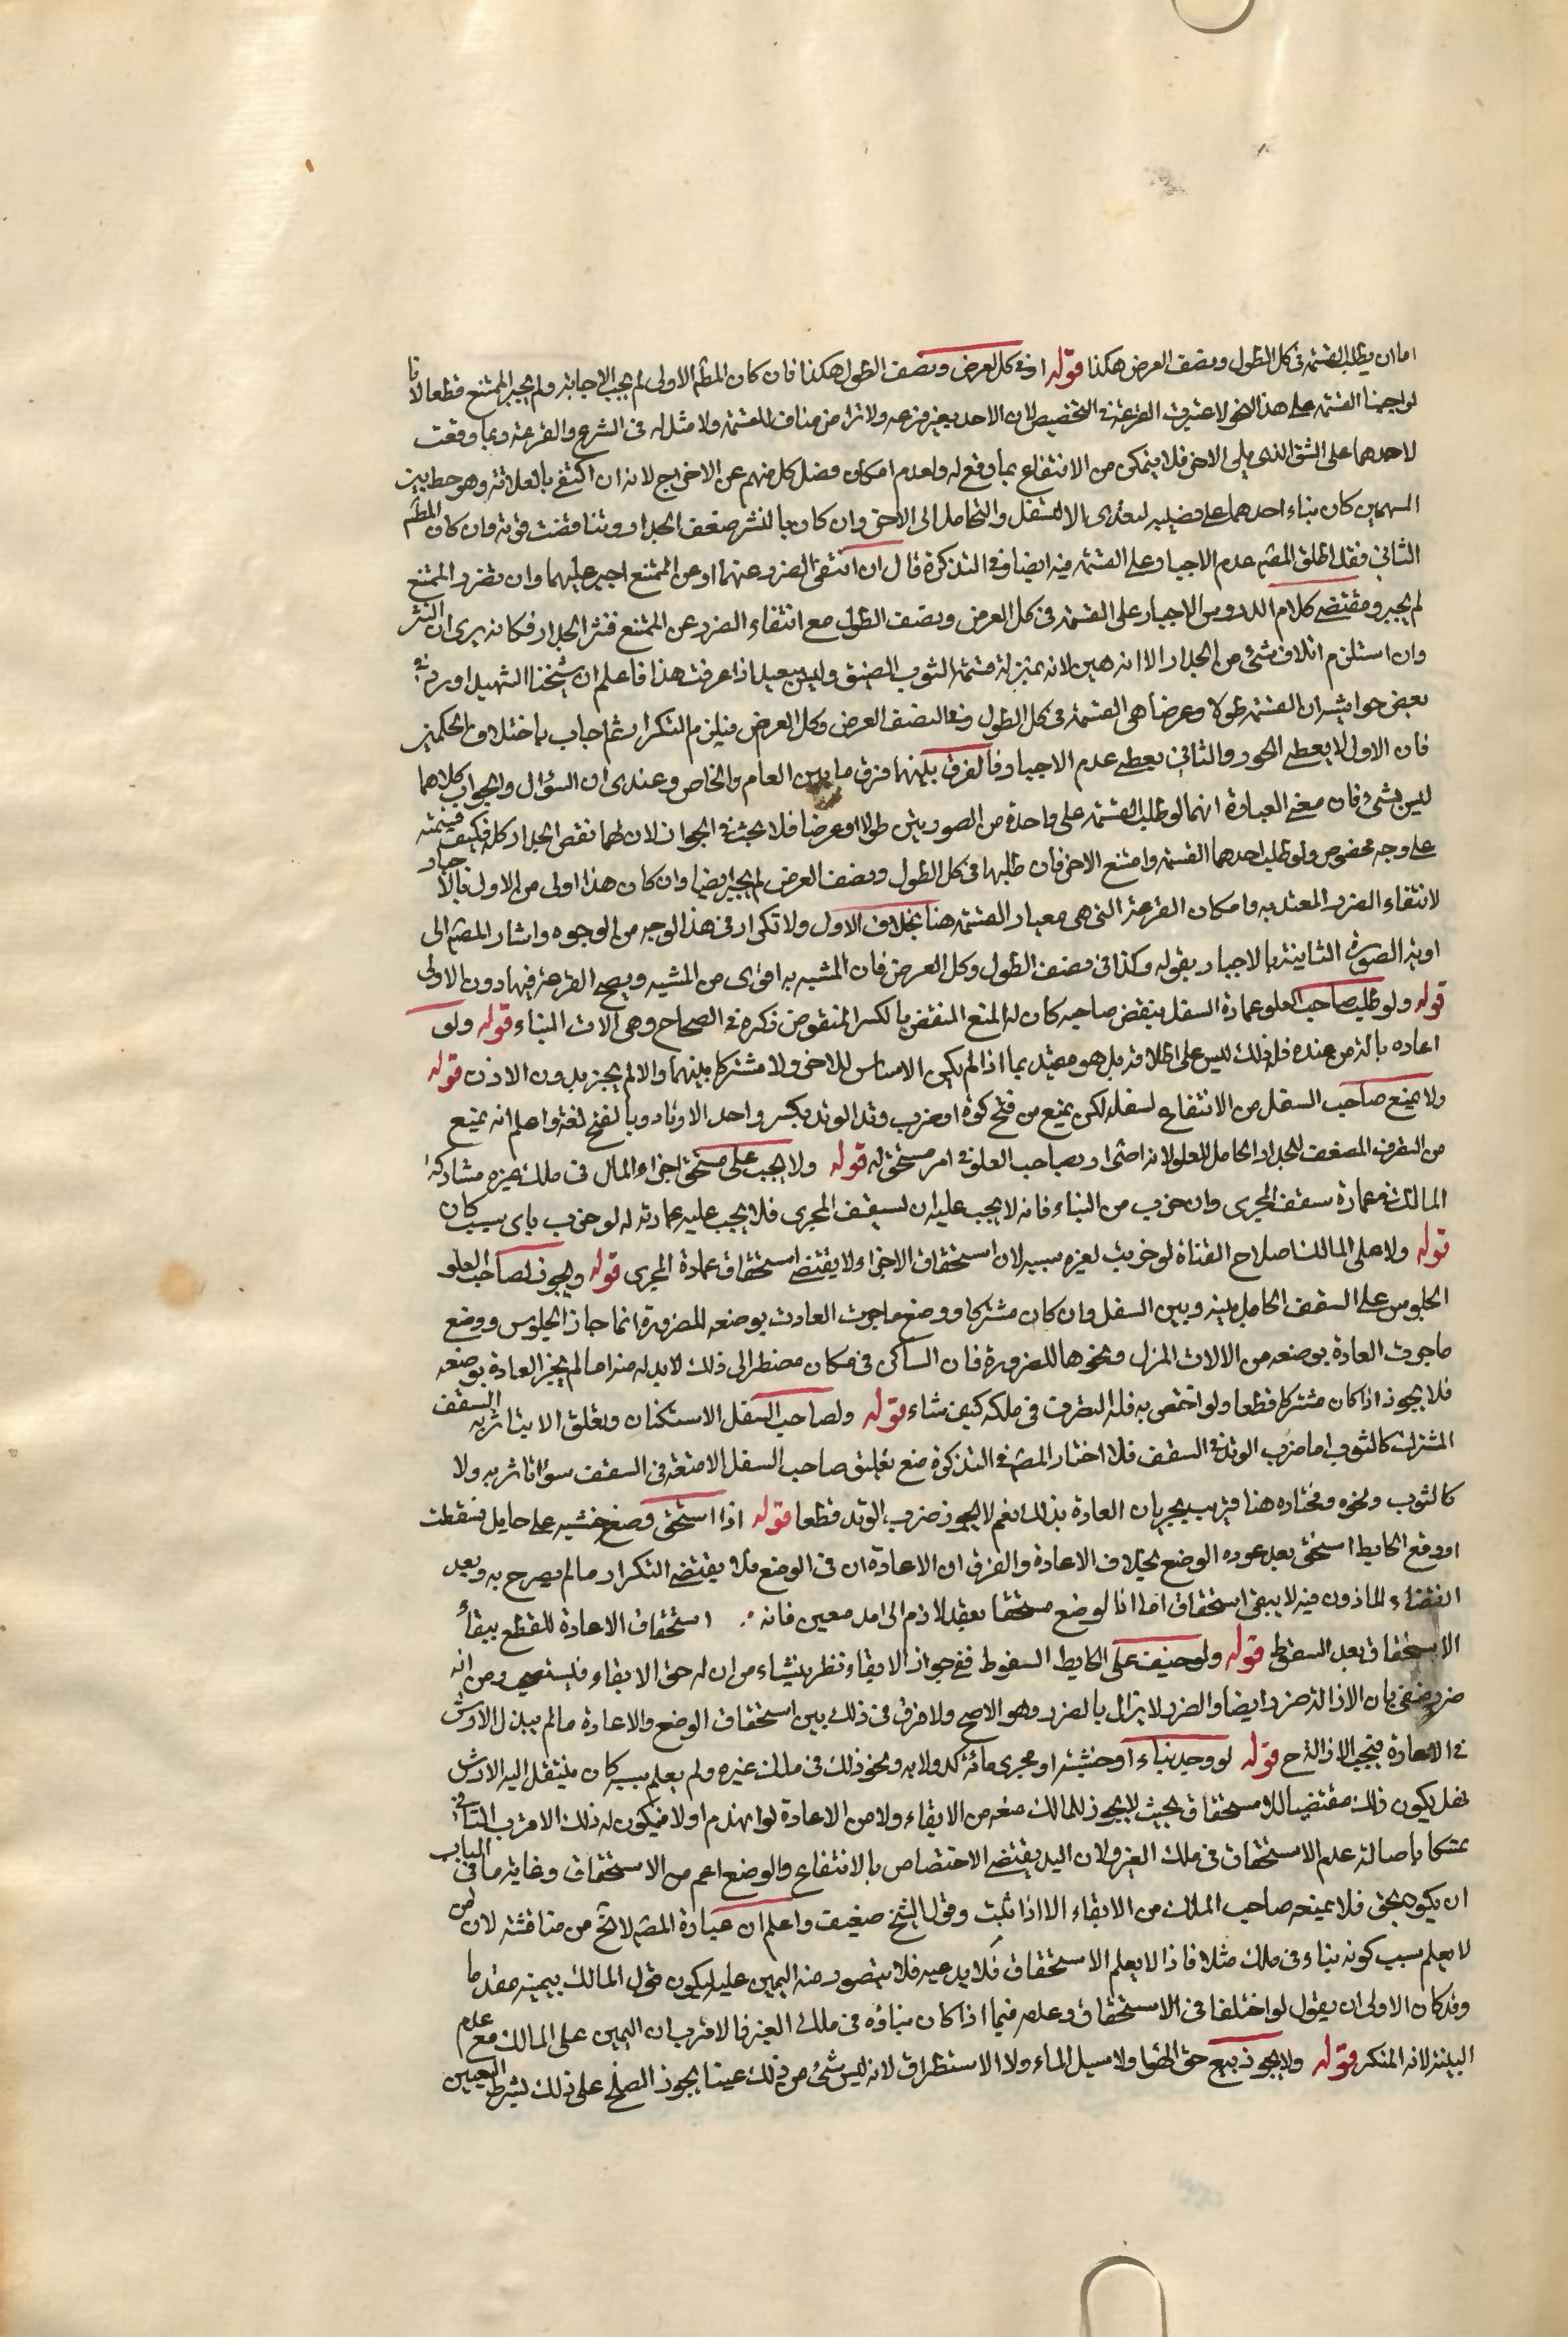 اما ان يطلب القسمة في كل الطول ونصف العرض هكذا قوله او في كل العرض ونصف الطول هكذا فان كان المطم الاولى لم يجب الاجابة ولم يجبر الممتنع قطعا لانا
لو اجبنا القسمة على هذا النحو لاعتبرت القرعة في التخصيص لان الاحد بغير قرعه ولا تراض مناف للقسمة ولا مثل له في الشرع والقرعة ربما وقعت
لاحدهما على الشق الذي يلي الاخر فلا يتمكن من الانتفاع بما وقع له ولعدم امكان فصل كل منهم عن الاخر اذ لانه ان اكتفى بالعلامة وهو خط بين
السهمين كان بناء احدهما على نصيبه لتعدى الا لثقل والتحامل الى الاخر وان كان بالنشر ضعف الجدار وتناقضت قوته وان كان المطم
الثاني فقد اطلق المصم عدم الاجبار على القسمة فيه ايضا وفي التذكرة قال ان انتفى الضرر عنهما او عن الممتنع اجبر عليهما وان تضرر الممتنع
لم يجبر ومقتضى كلام الدروس الاجبار على القسمة في كل العرض ونصف الطول مع انتفاء الضرر عن الممتنع فنشر الجدار فكانه يرى ان النشر
وان استلزم اتلاف شئ من الجدار الا انه هين لانه بمنزلة قسمة الثوب الصفيق وليس ببعيد اذا عرفت هذا فاعلم ان شيخنا الشهيد اورد في
بعض حواشيه ان القسمة طولا وعرضا هي القسمة في كل الطول ونصف العرض وكل العرض فيلزم التكرار ثم اجاب باختلاف الحكمين
فان الاول لا يعطي الجور والثاني يعطى عدم الاجبار فالفرق بينهما فرق ما بين العام والخاص وعندى ان السؤال والجواب كلاهما
ليس بشئ فان معنى العبارة انهما لو طلبا القسمة على واحدة من الصورتين طولا او عرضا فلا بحث في الجواز لان لهما نقض الجدار كله فكيف قسمته
على وجه مخصوص ولو طلب احدهما القسمة وامتنع الاخر فان طلبها في كل الطول ونصف العرض لم يجبر ايضا وان كان هذا اولى من الاول بالاجبار
لانتفاء الضرر المعتد به وامكان القرعة التي هي معيار القسمة هنا بخلاف الاول ولا تكرار في هذا الوجه من الوجوه واشار المصم الى
اولوية الصورة الثانية بالاجبار بقوله وكذا في نصف الطول وكل العرض فان المشبه به اقوى من المشبه ويصح القرعة فيها دون الاولى
قوله ولو طلب صاحب العلو عمارة السفل بنقض صاحبه كان له المنع المنقض بالكسر المنقوض ذكره في الصحاح وهي الات البناء قوله ولو
اعاده بالة من عنده فله ذلك ليس على اطلاقه بل هو مقيد بما اذا لم يكن الاساس للاخر ولا مشتركا بينهما والا لم يجز بدون الاذن قوله
ولا يمنع صاحب السفل من الانتفاع لسفله لكن يمنع من فتح كوة او ضرب وتد الوتد بكسر واحد الاوتاد وبالفتح لغة واعلم انه يمنع
من التصرف المضعف للجدار الحامل للعلو لانه اضرار بصاحب العلو في امر مستحق له قوله ولا يجب على مستحق اجراء المال في ملك غيره مشاركة
المالك في عمارة سقف المجرى وان خرب من البناء فانه لا يجب عليه ان يسقف المجرى فلا يجب عليه عمارته له لو خرب باى سبب كان
قوله ولا على المالك اصلاح القناة لو خربت لغير سببه لان استحقاق الاجراء لا يقتضي استحقاق عمارة المجرى قوله ويجوز لصاحب العلو
الجلوس على السقف الحامل بينه وبين السفل وان كان مشتركا ووضع ما جرت العادت بوضعه للضرورة انما جاز الجلوس ووضع
ما جرت العادة بوضعه من الالات المنزل ونحوها للضرورة فان الساكن في مكان مضطر الى ذلك لا بد له منه اما لم يجز العادة بوضعه
فلا يجوز اذا كان مشتركا قطعا ولو اختص به فله التصرف في ملكه كيف شاء قوله ولصاحب السفل الاستكنان وتعلق الا يتاثر به السقف
المشترك كالثوب اما ضرب الوتد في السقف فلا اختار المصم في التذكرة منع تعليق صاحب السفل الامتعة في السقف سوا اتاثر به ولا
كالثوب ونحوه ومختاره هنا قريب لجريان العادة بذلك نعم لا يجوز ضرب الوتد قطعا قوله اذا استحق وضع خشبة على حايط فسقطت
او وقع الحايط استحق بعد عوده الوضع بخلاف الاعادة والفرق ان الاعادة ان في الوضع مثلا يقتضي التكرار ما لم يصرح به وبعد
انقضاء الماذون فيه لا يبقى استحقاق اما انا لو ضع مستحقا بعقد لازم الى امد معين فانه استحقاق الاعادة للقطع ببقاء
الاستحقاق بعد السقوط قوله ولو خيف على الحايط السقوط ففي جواز الابقاء نظر ينشاء من ان له حق الابقاء فيستصحب ومن انه
ضرر منفي فان الازالة ضرر ايضا والضرر لا يزال بالضرر وهو الاصح ولا فرق في ذلك بين استحقاق الوضع والاعادة ما لم يبذل الارش
في الاعادة فيجب الازالة ح قوله لو وجد بناء او خشبة او مجرى مائه كدولابه ونحو ذلك في ملك غيره ولم يعلم سببه كان منتقل اليه الارش
فهل يكون ذلك مقتضيا للاستحقاق بحيث لا يجوز للمالك منعه من الابقاء ولا من الاعادة لو انهدم اولا فيكون له ذلك الاقرب الثاني
تمسكا باصالة عدم الاستحقاق في ملك الغير ولان اليد يقتضي الاختصاص بالانتفاع والوضع اعم من الاستحقاق وغاية ما في الباب
ان يكون بحق فلا يمنعه صاحب الملك من الابقاء الا اذا ثبت وقول الشيخ ضعيف واعلم ان عبارة المصم لا تخ من مناقشة لان من
لا يعلم سبب كونه بناء في ملك مثلا فاذا لا يعلم الاستحقاق فلا يدعيه فلا يتصور منه اليمين عليه ليكون قول المالك بيمينه مقدما
وقد كان الاولى ان يقول لو اختلفا في الاستحقاق وعدمه فيما اذا كان بناؤه في ملك الغير فالاقرب ان اليمين على المالك مع عدم
البينة لانه المنكر قوله ولا يجوز بيع حق الهوا ولا سيل الماء ولا الاستطراق لانه ليس شئ من ذلك عينا يجوز الصلح على ذلك بشرط التعيين